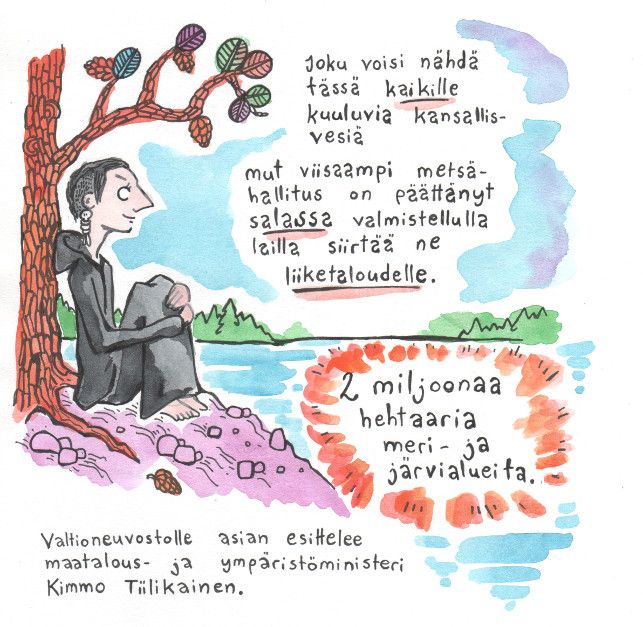 Joku voisi nähdä
tässä kaikille
kuuluvia kansallis-
vesiä
mut viisaampi metsä-
hallitus on päättänyt
salassa valmistellulla
lailla siirtää ne
liiketaloudelle.
2 miljoonaa
hehtaaria
meri- ja
järvialueita.
Valtioneuvostolle asian esittelee
maatalous- ja ympäristöministeri
Kimmo Tiilikainen.